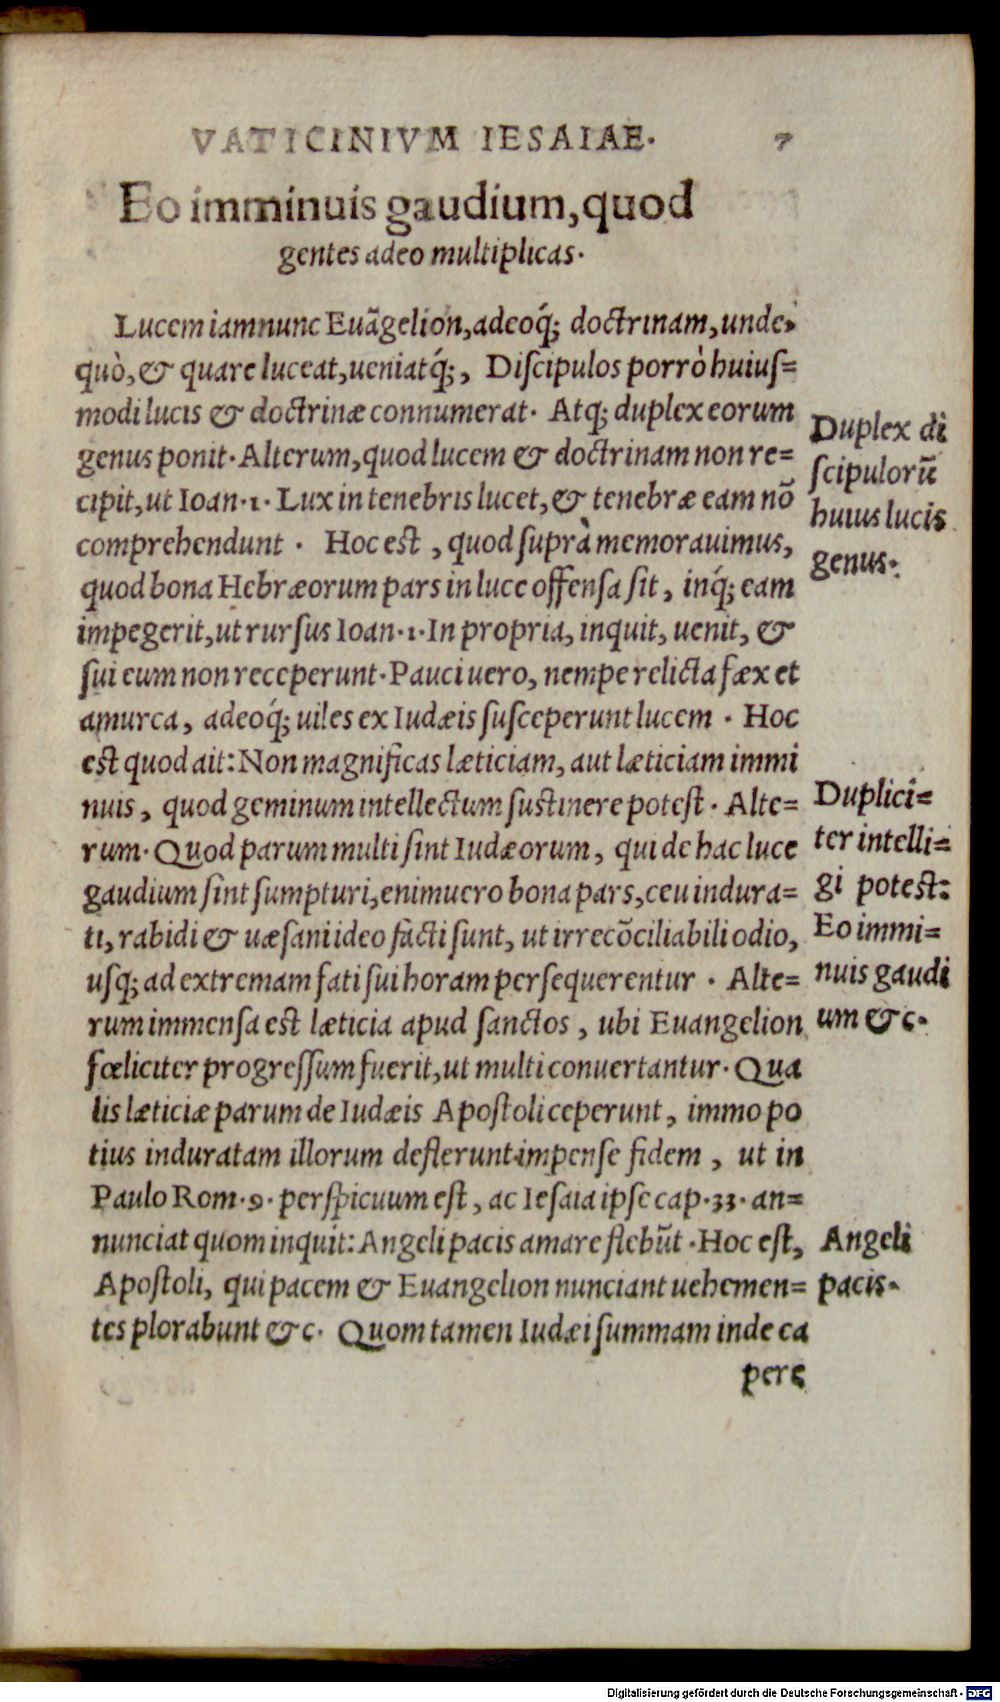 VATICINIVM IESAIAE. 7
Eo imminuis gaudium, quod
gentes adeo multiplicas.
Lucem iamnunc Euãgelion, adeoq́;, doctrinam, unde,
quò, & quare luceat, ueniatq́;, Discipulos porrò huius=
modi lucis & doctrinæ connumerat. Atq; duplex eorum
genus ponit. Alterum, quod lucem & doctrinam non re=
cipit, ut Ioan. 1. Lux in tenebris lucet, & tenebræ eam nõ
comprehendunt. Hoc est, quod suprà memorauimus,
quod bona Hebræorum pars in luce offensa sit, inq́; eam
impegerit, ut rursus Ioan. 1. In propria, inquit, uenit, &
sui eum non receperunt. Pauci uero, nempe relicta fæx et
amurca, adeoq́; uiles ex Iudæis susceperunt lucem. Hoc
est quod ait: Non magnificas læticiam, aut læticiam immi
nuis, quod geminum intellectum sustinere potest. Alte=
rum. Quod parum multi sint Iudæorum, qui de hac luce
gaudium sint sumpturi, enimuero bona pars, ceu indura=
ti, rabidi & uæsani ideo facti sunt, ut irrecõciliabili odio,
usq; ad extremam fati sui horam persequerentur. Alte=
rum immensa est læticia apud sanctos, ubi Euangelion
fœliciter progressum fuerit, ut multi conuertantur. Qua
lis læticiæ parum de Iudæis Apostoli ceperunt, immo po
tius induratam illorum deflerunt impense fidem, ut in
Paulo Rom. 9. perspicuum est, ac Iesaia ipse cap. 33. an=
nunciat quom inquit: Angeli pacis amare flebũt. Hoc est,
Apostoli, qui pacem & Euangelion nunciant uehemen=
tes plorabunt &c. Quom tamen Iudæi summam inde ca
pere
Duplex di
scipulorũ
huius lucis
genus.
Duplici=
ter intelli=
gi potest:
Eo immi=
nuis gaudi
um &c.
Angeli
pacis.
Digitalisierung gefördert durch die Deutsche Forschungsgemeinschaft - DFG